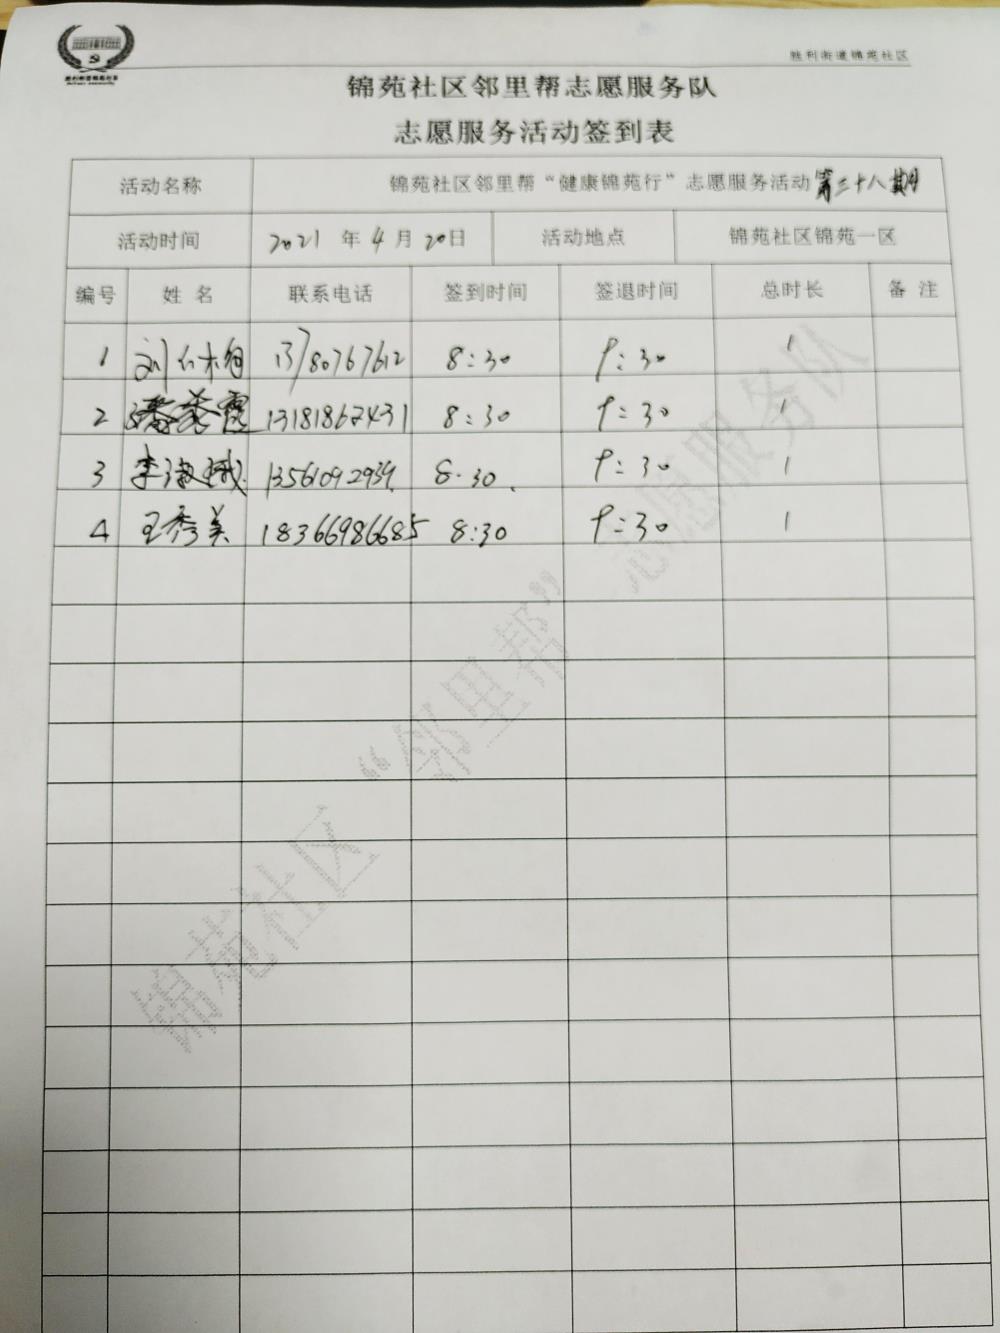 胜利街道锦苑社区
锦苑社区邻里帮志愿服务队
志愿服务活动签到表
活动名称 锦苑社区邻里帮“健康锦苑行”志愿服务活动第三十八期
活动时间 2021 年 4 月 20日 活动地点 锦苑社区锦苑一区
编号 姓 名 联系电话 签到时间 签退时间 总时长 备 注
1 刘 13780767612 8:30 9:30 1
2 霞 13181862431 8:30 9:30 1
3 李淑娥 13561092939 8:30 9:30 1
4 王秀美 18366986685 8:30 9:30 1
锦苑社区“邻里帮”志愿服务队